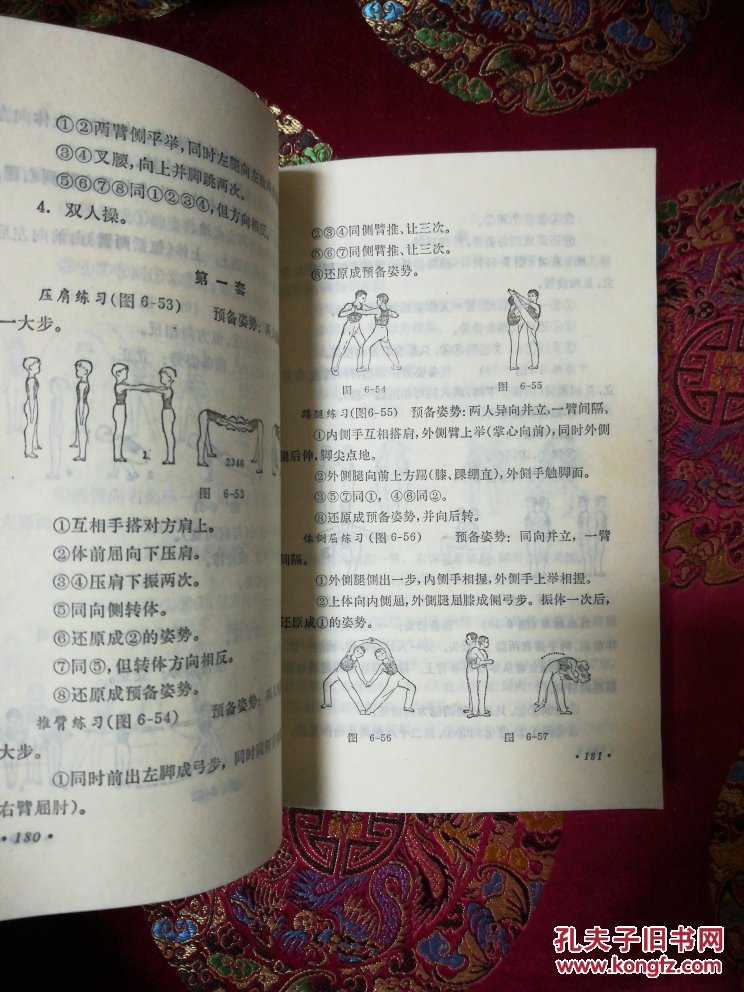 ①②两臂侧平举，同时左腿向左
③④叉腰，向上并脚跳两次。
⑤⑥⑦⑧同①②③④，但方向相反。
4. 双人操。
第一套
压肩练习(图6-53) 预备姿势：两人
一大步。
1.
2346
图 6-53
①互相手搭对方肩上。
②体前屈向下压肩。
③④压肩下振两次。
⑤同向侧转体。
⑥还原成②的姿势。
⑦同⑤，但转体方向相反。
⑧还原成预备姿势。
推臂练习(图6-54) 预备姿势：两人
大步。
①同时前出左脚成弓步，同时同
右臂屈肘)。
·180·
②③④同侧臂推、让三次。
⑤⑥⑦同侧臂推、让三次。
⑧还原成预备姿势。
图 6-54 图 6-55
踢腿练习(图6-55) 预备姿势：两人异向并立，一臂间隔。
①内侧手互相搭肩，外侧臂上举(掌心向前)，同时外侧
腿后伸，脚尖点地。
②外侧腿向前上方踢(膝、踝绷直)，外侧手触脚面。
③⑤⑦同①，④⑥同②。
⑧还原成预备姿势，并向后转。
体侧屈练习(图6-56) 预备姿势：同向并立，一臂
间隔。
①外侧腿侧出一步，内侧手相握，外侧手上举相握。
②上体向内侧屈，外侧腿屈膝成侧弓步。振体一次后，
还原成①的姿势。
图 6-56 图 6-57
·181·
孔夫子旧书网
www.kongfz.com